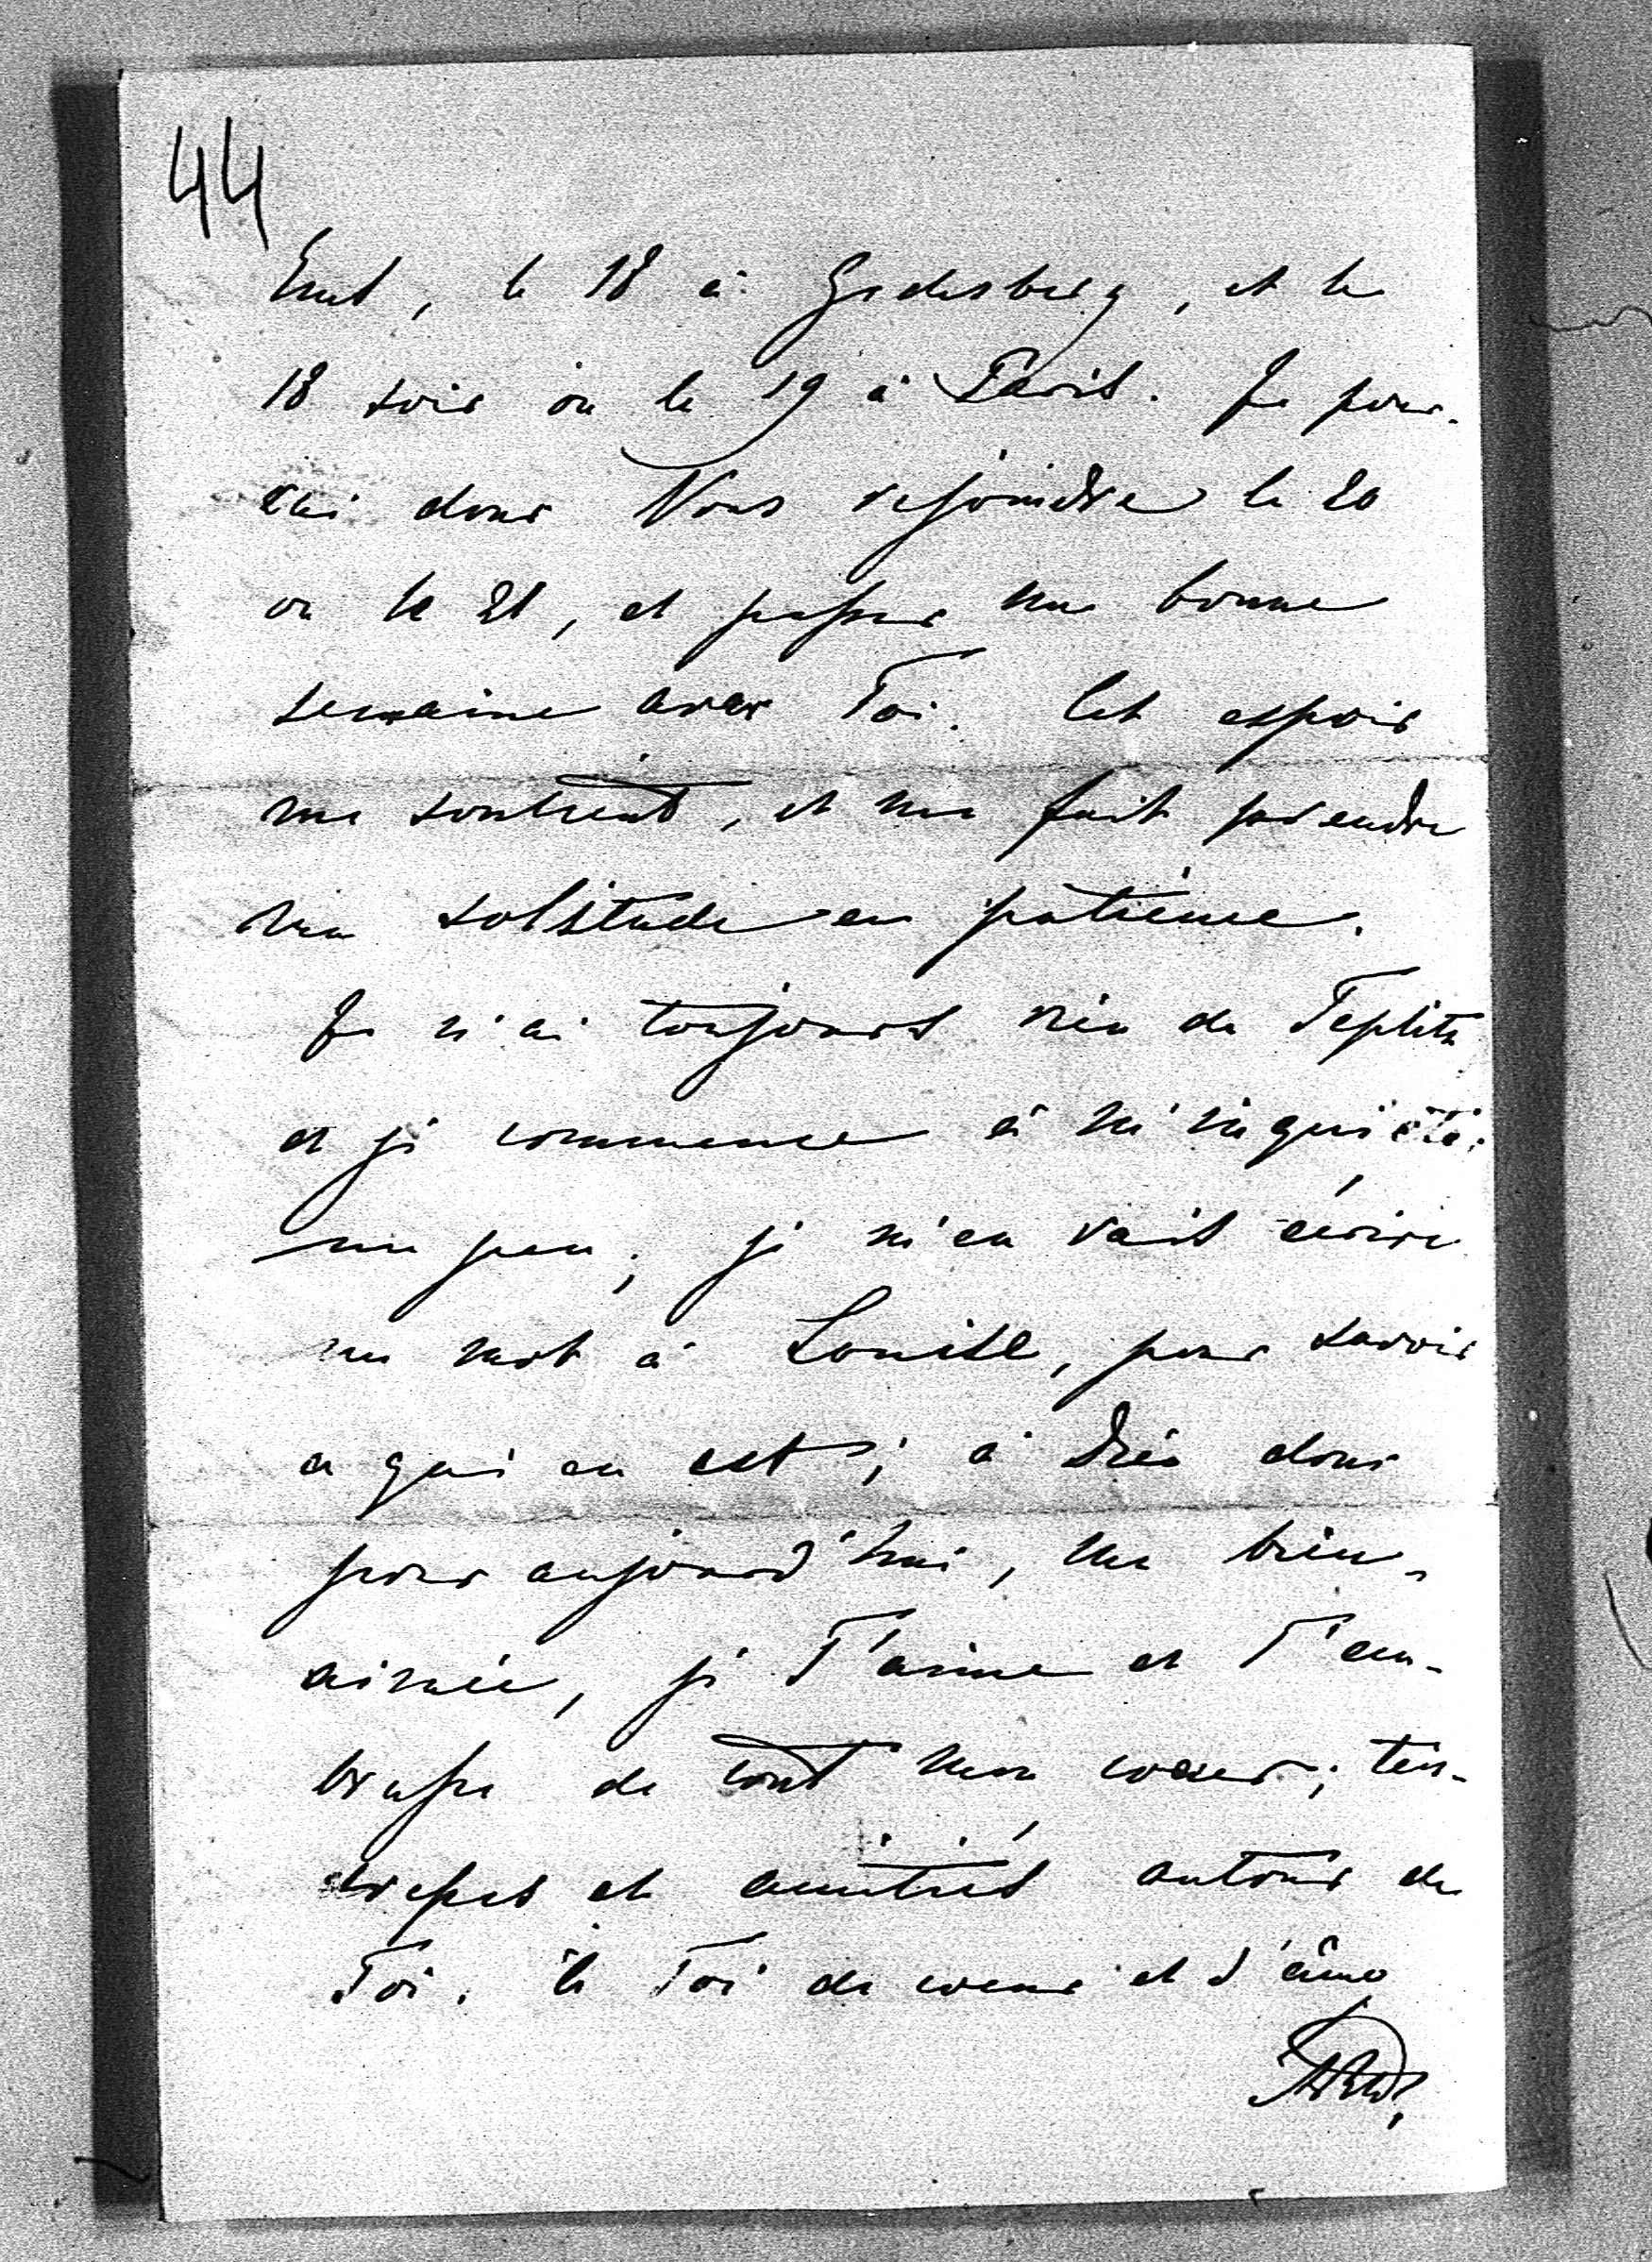 44
Ems, le 18 à Godesberg, et le
18 soir ou le 19 à Paris. Je pour-
rai donc Vous rejoindre le 20
ou le 21, et passer une bonne
semaine avec Toi. Cet espoir
me soutient, et me fait prendre
ma solitude en patience.
Je n'ai toujours rien de Teplitz
et je commence à m'inquiéter
un peu; je m'en vais écrire
un mot à Louise, pour savoir
ce qui en est; à Dieu donc
pour aujourd'hui, ma bien-
aimée, je T'aime et T'em-
brasse de tout mon coeur; ten-
dresses et amitiés autour de
Toi. à Toi de coeur et d'âme